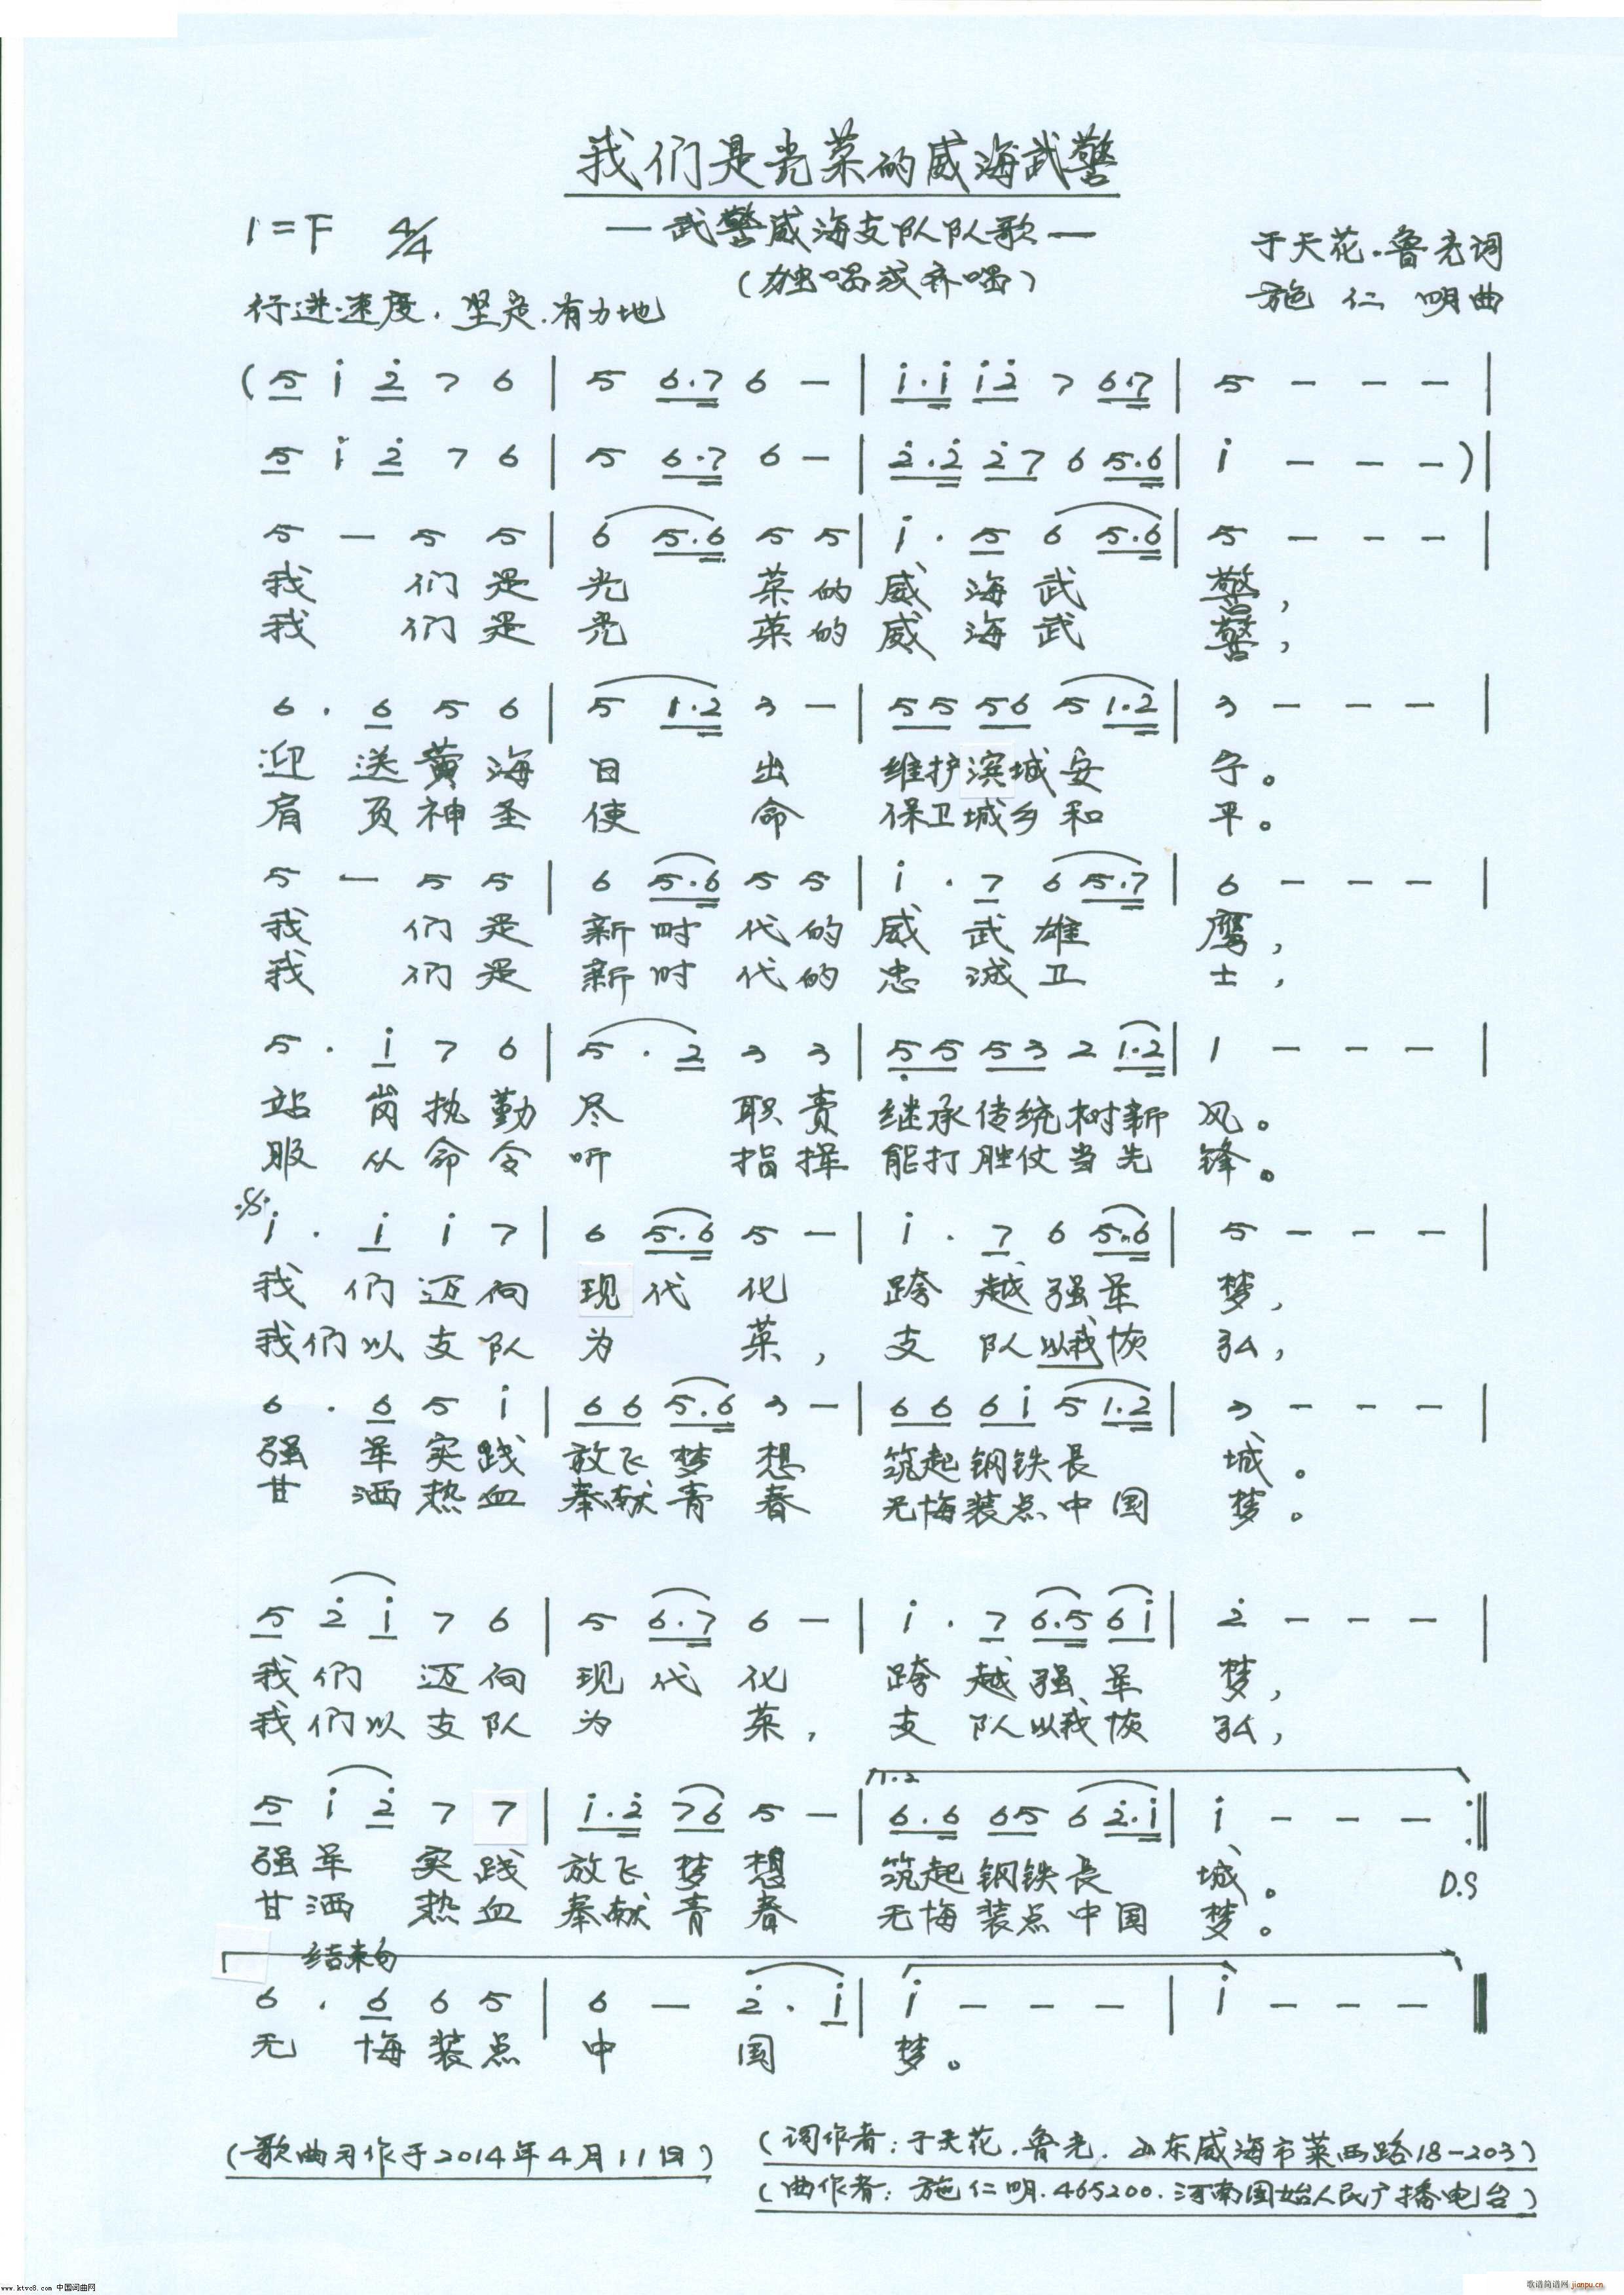 我们是光荣的威海武警
1=F 4/4 —武警威海支队队歌— 于天花.鲁光词
(独唱或齐唱) 施仁明曲
行进速度.坚定.有力地
(5 i 2̇ 7 6 | 5 6.7 6 — | i.i i2̇ 7 6.7 | 5 — — — |
5 i 2̇ 7 6 | 5 6.7 6 — | 2̇.2̇ 2̇7 6 5.6 | i — — —)|
5 — 5 5 | 6 5.6 5 5 | i . 5 6 5.6 | 5 — — — |
我 们 是 光 荣 的 威 海 武 警,
我 们 是 光 荣 的 威 海 武 警,
6 . 6 5 6 | 5 1.2 3 — | 55 56 5 1.2 | 3 — — — |
迎 送 黄 海 日 出 维护滨城安 宁。
肩 负 神 圣 使 命 保卫城乡和 平。
5 — 5 5 | 6 5.6 5 5 | i . 7 6 5.7 | 6 — — — |
我 们 是 新 时 代 的 威 武 雄 鹰,
我 们 是 新 时 代 的 忠 诚 卫 士,
5 . i 7 6 | 5 . 2 3 3 | 5̣5 53 2 1.2 | 1 — — — |
站 岗 执 勤 尽 职 责 继承传统树新 风。
服 从 命 令 听 指 挥 能打胜仗当先 锋。
i . i i 7 | 6 5.6 5 — | i . 7 6 5.6 | 5 — — — |
我 们 迈 向 现 代 化 跨 越 强 军 梦,
我们以 支 队 为 荣, 支 队以我恢 弘,
6 . 6 5 i | 66 5.6 3 — | 66 6i 5 1.2 | 3 — — — |
强 军 实 践 放飞梦 想 筑起钢铁长 城。
甘 洒 热 血 奉献青 春 无悔装点中国 梦。
5 2̇ i 7 6 | 5 6.7 6 — | i . 7 6.5 6i | 2̇ — — — |
我 们 迈 向 现 代 化 跨 越 强 军 梦,
我 们以 支 队 为 荣, 支 队以我恢 弘,
1.2
5 i 2̇ 7 7 | i.2̇ 76 5 — | 6.6 65 6 2̇.i | i — — — :‖
强 军 实 践 放飞梦 想 筑起钢铁长 城。 D.S
甘 洒 热 血 奉献青 春 无悔装点中国 梦。
结束句
6 . 6 6 5 | 6 — 2̇ . i | i — — — | i — — — ‖
无 悔 装 点 中 国 梦。
(歌曲习作于2014年4月11日) (词作者:于天花.鲁光.山东威海市莱西路18-203)
(曲作者:施仁明.465200.河南固始人民广播电台)
www.ktvc8.com 中国词曲网
歌谱简谱网
jianpu.cn